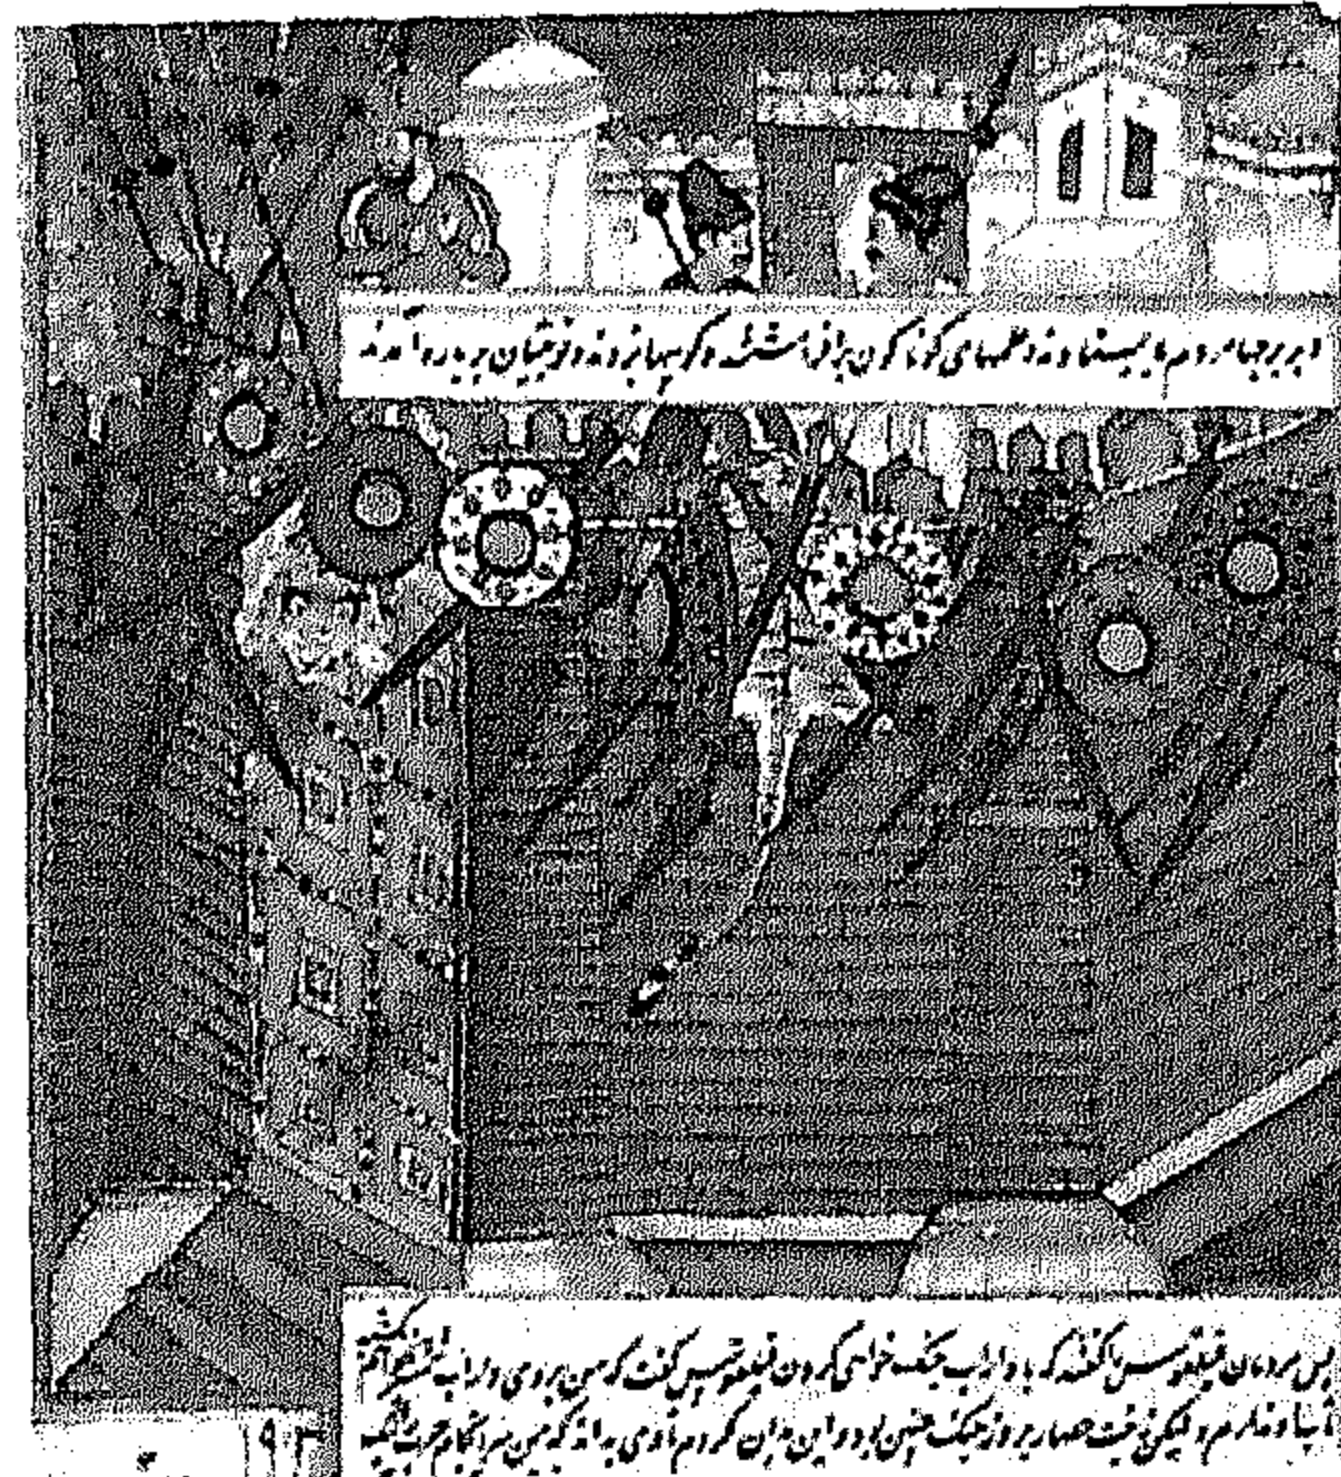 و بر برجها مردم بایستادند و علمهای گوناگون برافراشتند و کوسها بزدند و رومیان بر باره آمدند
پس مردمان فیلقوس را گفتند که با داراب جنگ خواهی کردن فیلقوس گفت که من بروی داراب
تاب ندارم و لیکن زینت حصار بروز جنگ چنین بود و این بدان کردم تا وی بداند که من
۹۳